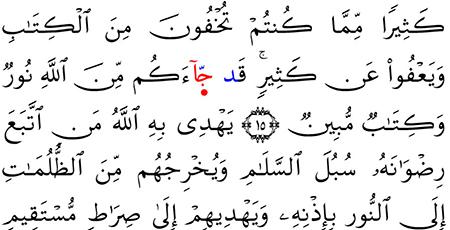 كَثِيرًا مِّمَّا كُنتُمْ تُخْفُونَ مِنَ ٱلْكِتَٰبِ
وَيَعْفُوا۟ عَن كَثِيرٍۚ قَد جَّآءَكُم مِّنَ ٱللَّهِ نُورٌ
وَكِتَٰبٌ مُّبِينٌ ١٥ يَهْدِى بِهِ ٱللَّهُ مَنِ ٱتَّبَعَ
رِضْوَٰنَهُۥ سُبُلَ ٱلسَّلَٰمِ وَيُخْرِجُهُم مِّنَ ٱلظُّلُمَٰتِ
إِلَى ٱلنُّورِ بِإِذْنِهِۦ وَيَهْدِيهِمْ إِلَىٰ صِرَٰطٍ مُّسْتَقِيمٍ